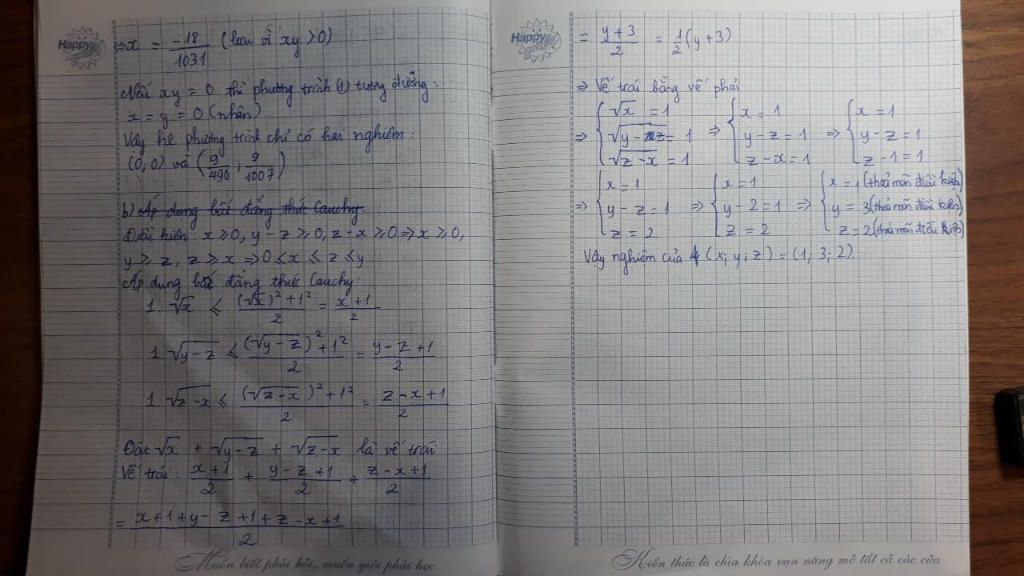 Happy
⇒ x = -18/1031 (loại vì xy > 0)
Nếu xy = 0 thì phương trình (1) tương đương:
x = y = 0 (nhận)
Vậy hệ phương trình chỉ có hai nghiệm:
(0, 0) và (9/490; 9/1007)
b) Áp dụng bất đẳng thức Cauchy
Điều kiện: x ≥ 0, y - z ≥ 0, z - x ≥ 0 ⇒ x ≥ 0,
y ≥ z, z ≥ x ⇒ 0 ≤ x ≤ z ≤ y
Áp dụng bất đẳng thức Cauchy:
1.√x ≤ ((√x)² + 1²)/2 = (x + 1)/2
1.√(y - z) ≤ ((√(y - z))² + 1²)/2 = (y - z + 1)/2
1.√(z - x) ≤ ((√(z - x))² + 1²)/2 = (z - x + 1)/2
Đặt √x + √(y - z) + √(z - x) là vế trái
Vế trái: (x + 1)/2 + (y - z + 1)/2 + (z - x + 1)/2
= (x + 1 + y - z + 1 + z - x + 1)/2
Muốn biết phải hỏi, muốn giỏi phải học
Happy
= (y + 3)/2 = 1/2(y + 3)
⇒ Vế trái bằng vế phải
⇒ { √x = 1 ⇒ { x = 1 ⇒ { x = 1
√(y - z) = 1 y - z = 1 y - z = 1
√(z - x) = 1 z - x = 1 z - 1 = 1
⇒ { x = 1 ⇒ { x = 1 ⇒ { x = 1 (thoả mãn điều kiện)
y - z = 1 y - 2 = 1 y = 3 (thoả mãn điều kiện)
z = 2 z = 2 z = 2 (thoả mãn điều kiện)
Vậy nghiệm của (x; y; z) = (1; 3; 2).
Kiến thức là chìa khóa vạn năng mở tất cả các cửa